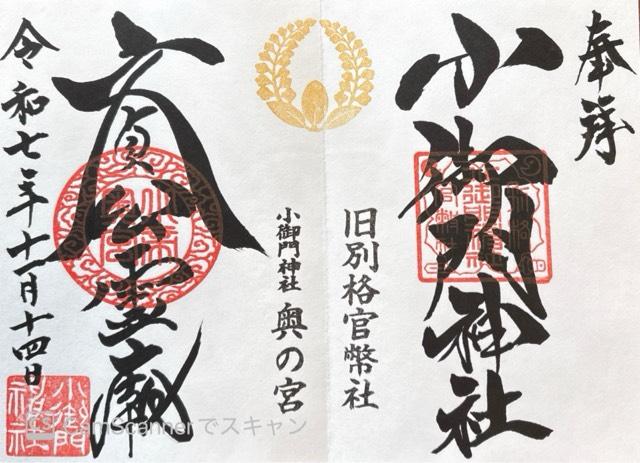 奉拝
小御門神社
旧別格官幣社
小御門神社 奥の宮
文貞公霊蔵
令和七年十一月十四日
小御門神社
CamScannerでスキャン